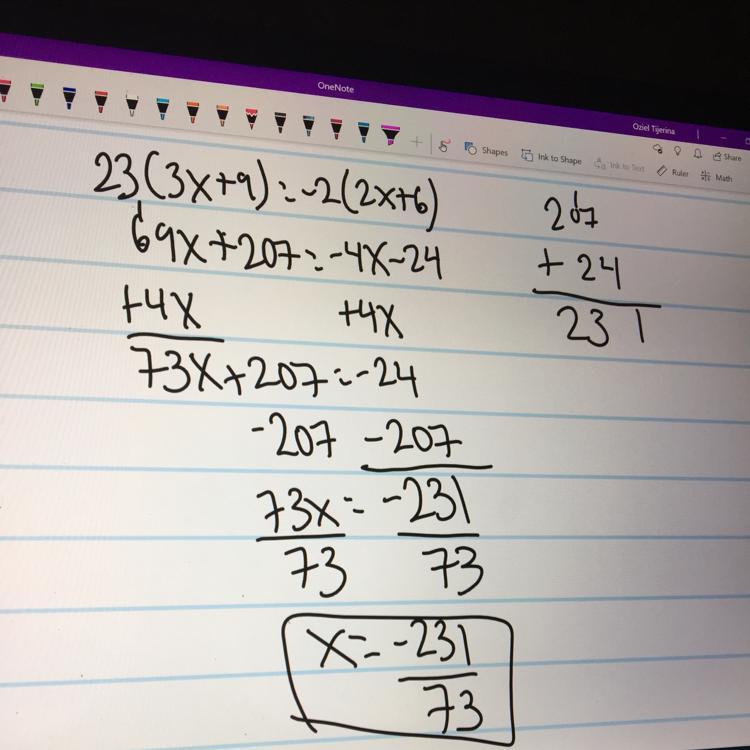 OneNote
Oziel Tijerina
Shapes
Ink to Shape
Ink to Text
Ruler
Math
Share
23(3x+9)=-2(2x+6)
69x+207=-4x-24
+4x +4x
73x+207=-24
-207 -207
73x=-231
73 73
x=-231
73
207
+24
231